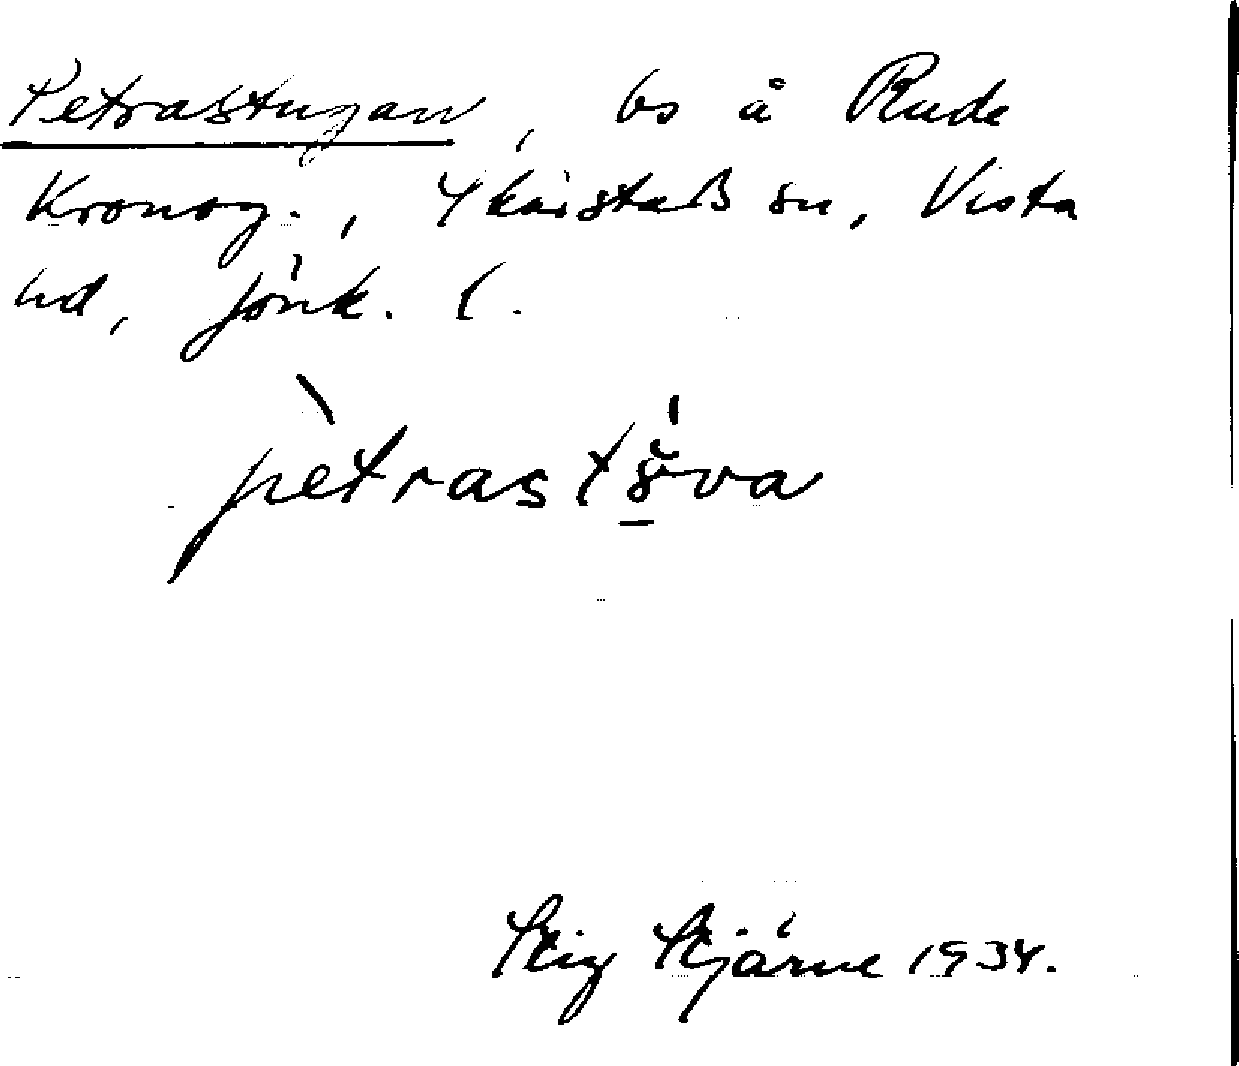 Petrastugan, bs å Rude
Kronog., Skärstads sn, Vista
hd, Jönk. l.
pètrastŏ̱́va
Stig Stjärne 1934.